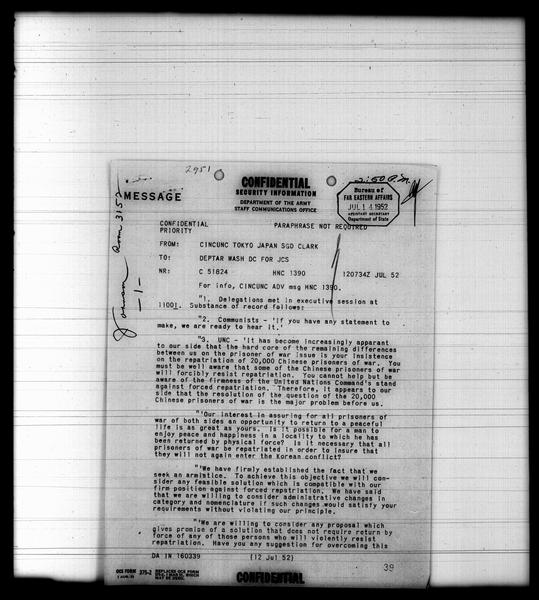 2951
CONFIDENTIAL
SECURITY INFORMATION
DEPARTMENT OF THE ARMY
STAFF COMMUNICATIONS OFFICE
MESSAGE
2:50 P.M.
Bureau of
FAR EASTERN AFFAIRS
JUL 14 1952
ASSISTANT SECRETARY
Department of State
Room 3152
-1-
CONFIDENTIAL
PRIORITY
PARAPHRASE NOT REQUIRED
FROM: CINCUNC TOKYO JAPAN SGD CLARK
TO: DEPTAR WASH DC FOR JCS
NR: C 51824 HNC 1390 120734Z JUL 52
For info, CINCUNC ADV msg HNC 1390.
"1. Delegations met in executive session at
1100I. Substance of record follows:
"2. Communists - 'If you have any statement to
make, we are ready to hear it.'
"3. UNC - 'It has become increasingly apparant
to our side that the hard core of the remaining differences
between us on the prisoner of war issue is your insistence
on the repatriation of 20,000 Chinese prisoners of war. You
must be well aware that some of the Chinese prisoners of war
will forcibly resist repatriation. You cannot help but be
aware of the firmness of the United Nations Command's stand
against forced repatriation. Therefore, it appears to our
side that the resolution of the question of the 20,000
Chinese prisoners of war is the major problem before us.
"'Our interest in assuring for all prisoners of
war of both sides an opportunity to return to a peaceful
life is as great as yours. Is it possible for a man to
enjoy peace and happiness in a locality to which he has
been returned by physical force? Is it necessary that all
prisoners of war be repatriated in order to insure that
they will not again enter the Korean conflict?
"'We have firmly established the fact that we
seek an armistice. To achieve this objective we will con-
sider any feasible solution which is compatible with our
firm position against forced repatriation. We have said
that we are willing to consider administrative changes in
category and nomenclature if such changes would satisfy your
requirements without violating our principle.
"'We are willing to consider any proposal which
gives promise of a solution that does not require return by
force of any of those persons who will violently resist
repatriation. Have you any suggestion for overcoming this
DA IN 160339 (12 Jul 52)
39
OCS FORM 375-2
REPLACES OCS FORM
375-2, 1 MAR 51, WHICH
MAY BE USED.
CONFIDENTIAL